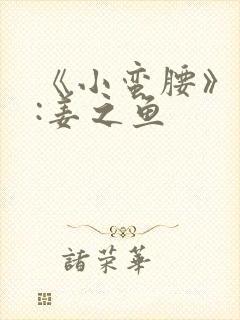 《小蛮腰》
:姜之鱼
諸荣華